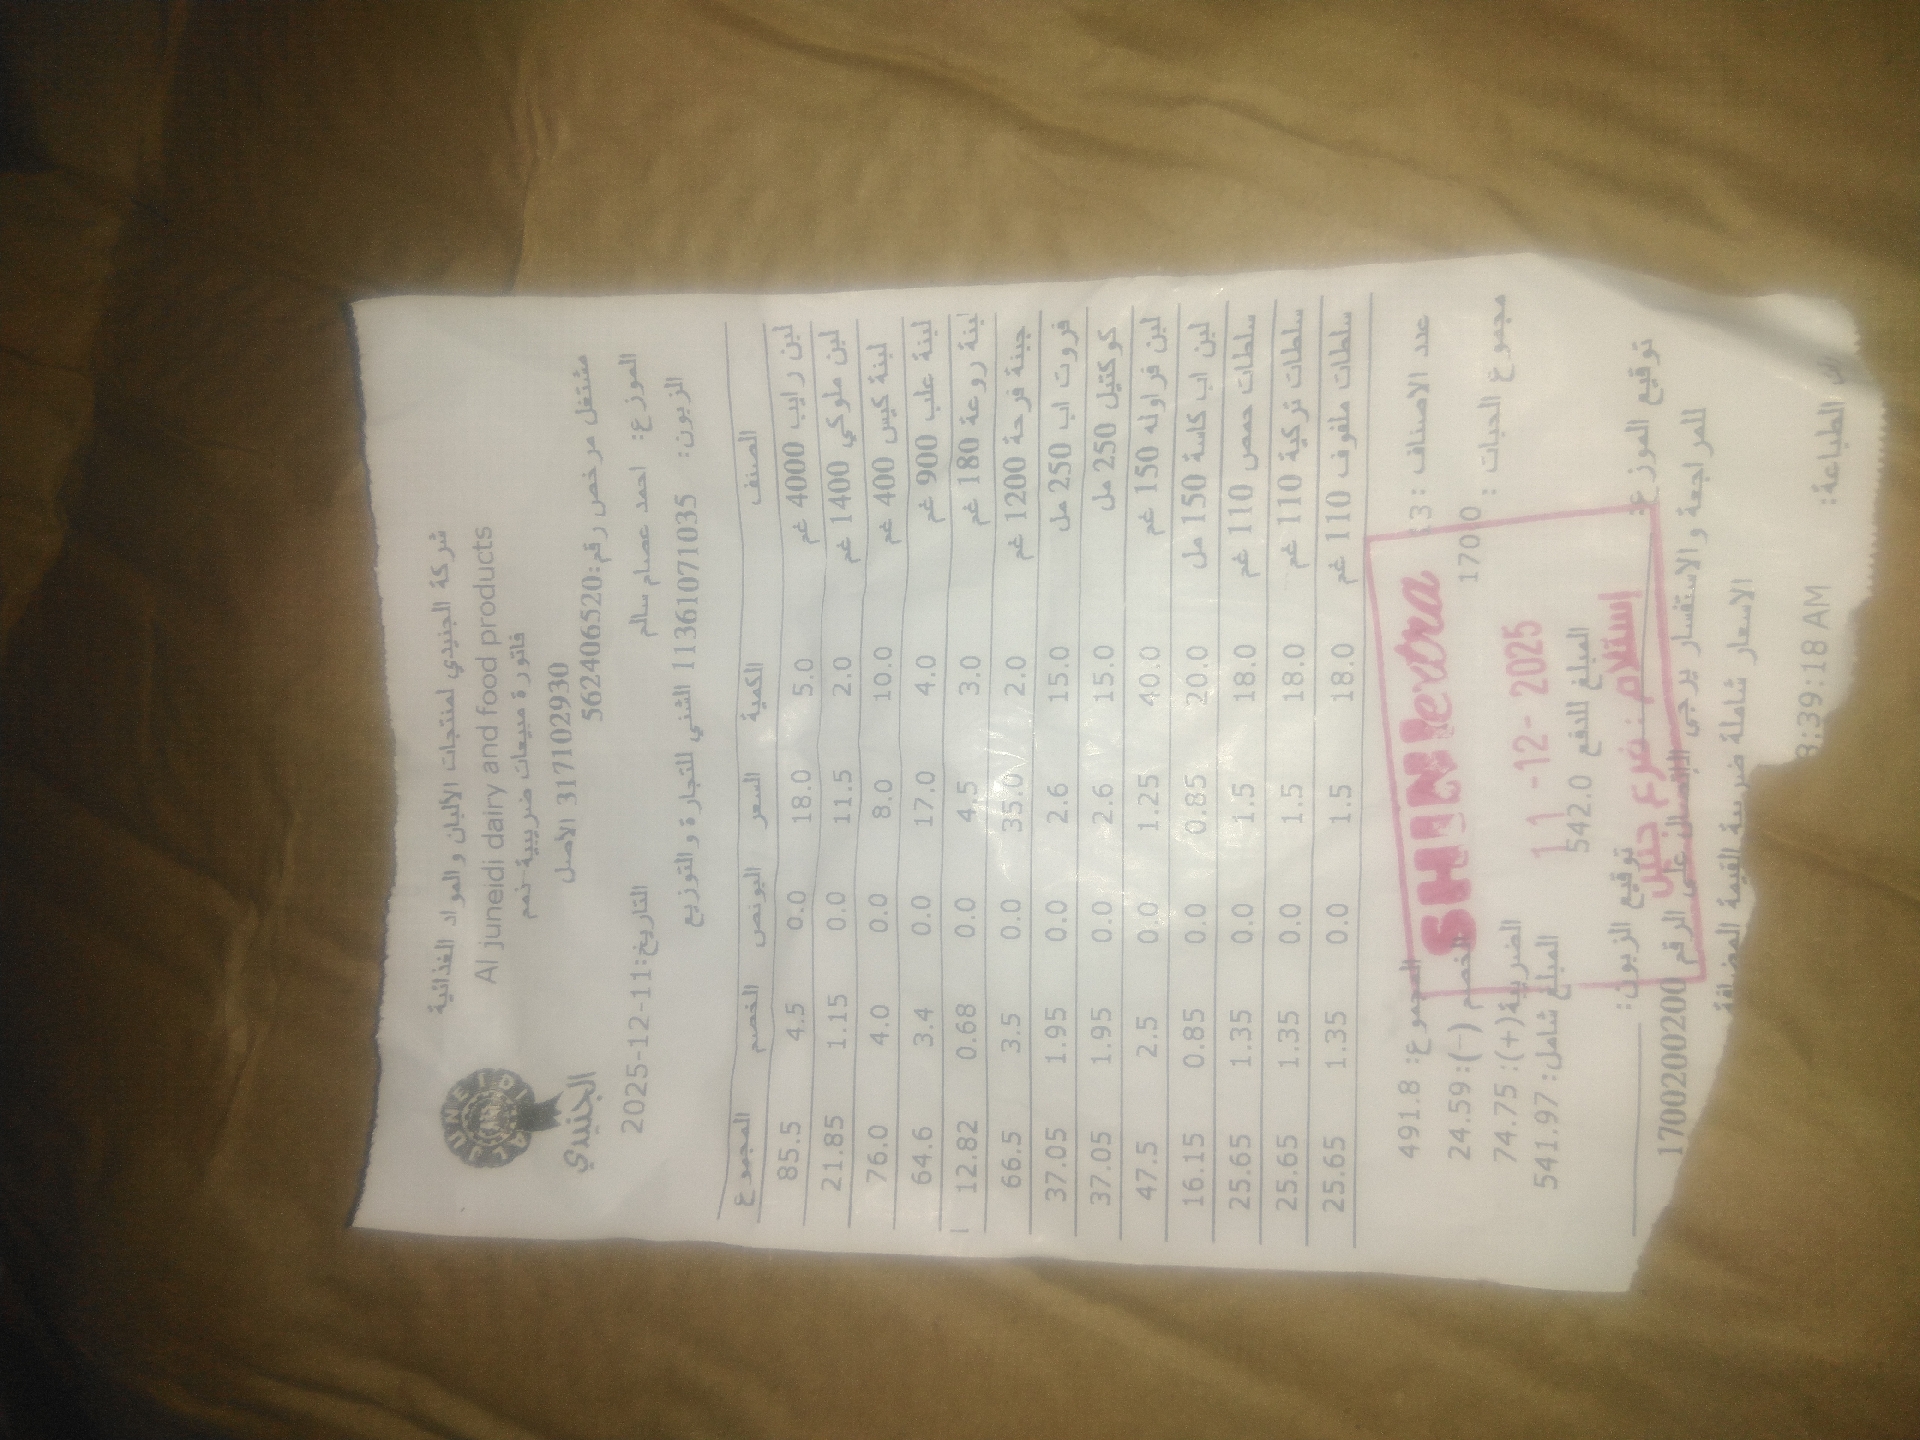 شركة الجنيدي لمنتجات الألبان والمواد الغذائية
Al juneidi dairy and food products
فاتورة مبيعات ضريبية نمم
317102930 الاصل
مشتغل مرخص رقم:562406520
AL JUNEIDI
الجنيدي
الموزع: احمد عصام سالم
التاريخ:2025-12-11
الزبون: 11361071035 الشني للتجارة والتوزيع
الصنف الكمية السعر البونص الخصم المجموع
لبن رايب 4000 غم 5.0 18.0 0.0 4.5 85.5
لبن ملوكي 1400 غم 2.0 11.5 0.0 1.15 21.85
لبنة كيس 400 غم 10.0 8.0 0.0 4.0 76.0
لبنة علب 900 غم 4.0 17.0 0.0 3.4 64.6
لبنة روعة 180 غم 3.0 4.5 0.0 0.68 12.82
جبنة فرحة 1200 غم 2.0 35.0 0.0 3.5 66.5
فروت اب 250 مل 15.0 2.6 0.0 1.95 37.05
كوكتيل 250 مل 15.0 2.6 0.0 1.95 37.05
لبن فراوله 150 غم 40.0 1.25 0.0 2.5 47.5
لبن اب كاسة 150 مل 20.0 0.85 0.0 0.85 16.15
سلطات حمص 110 غم 18.0 1.5 0.0 1.35 25.65
سلطات تركية 110 غم 18.0 1.5 0.0 1.35 25.65
سلطات ملفوف 110 غم 18.0 1.5 0.0 1.35 25.65
عدد الاصناف : 13
المجموع: 491.8
SHINI extra
الخصم (-): 24.59
مجموع الحبات : 170.0
11-12-2025
الضريبة(+): 74.75
المبلغ شامل: 541.97
المبلغ للدفع 542.0
إستلام: فرع جنين
توقيع الموزع:
توقيع الزبون:
للمراجعة والاستفسار يرجى الاتصال على الرقم 1700200200
الاسعار شاملة ضريبة القيمة المضافة
الطباعة: 8:39:18 AM